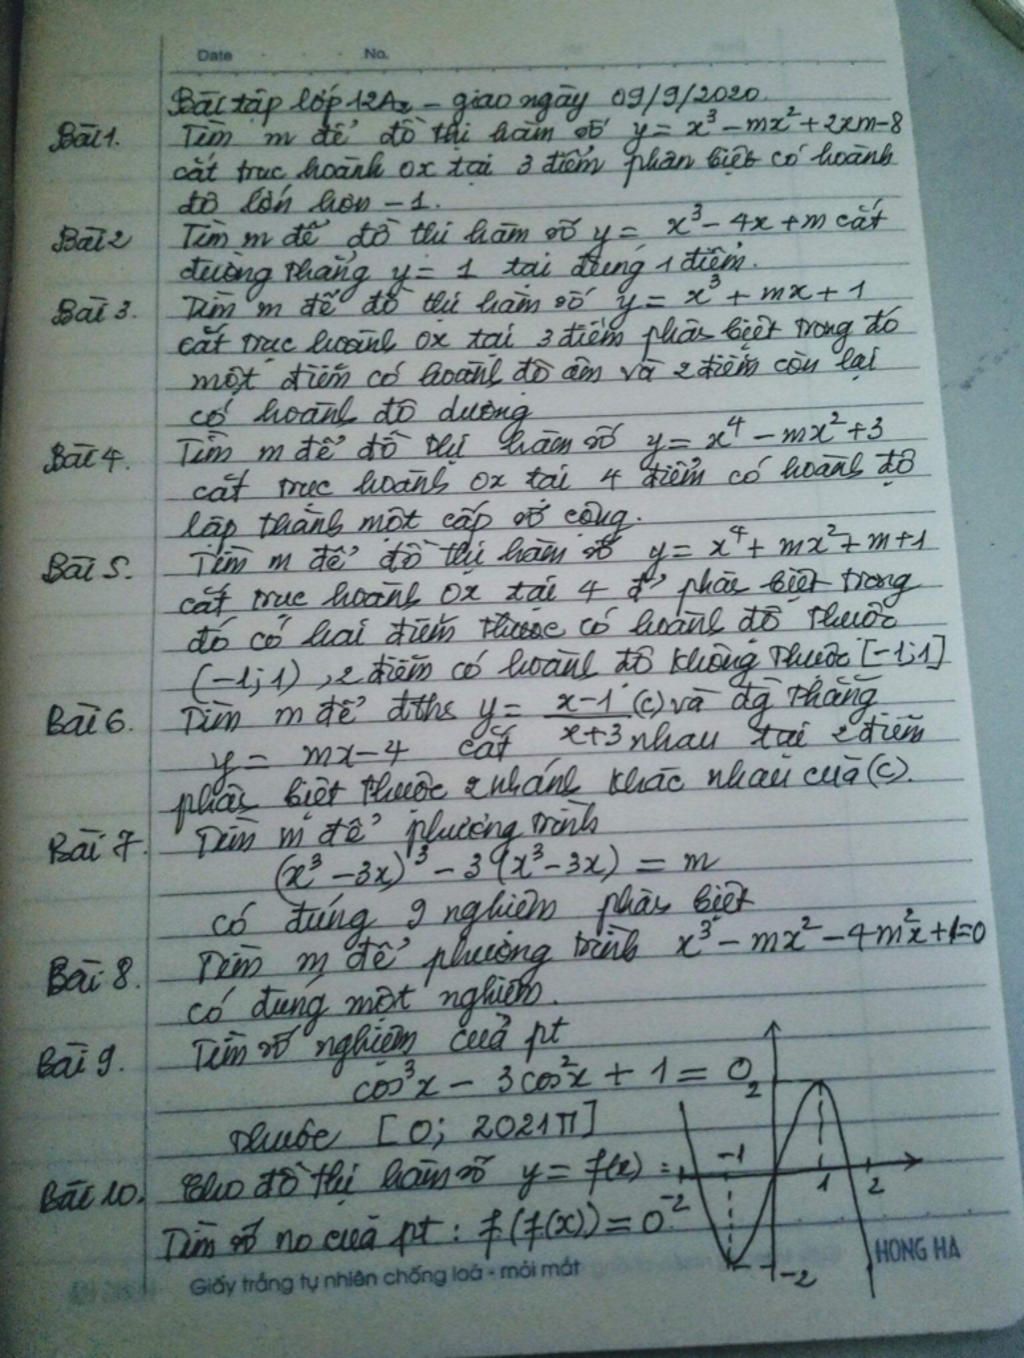 Date No.
Bài tập lớp 12A2 - giao ngày 09/9/2020.
Bài 1. Tìm m để đồ thị hàm số y = x³ - mx² + 2xm - 8
cắt trục hoành ox tại 3 điểm phân biệt có hoành
độ lớn hơn -1.
Bài 2 Tìm m để đồ thị hàm số y = x³ - 4x + m cắt
đường thẳng y = 1 tại đúng 1 điểm.
Bài 3. Tìm m để đồ thị hàm số y = x³ + mx + 1
cắt trục hoành ox tại 3 điểm phân biệt trong đó
một điểm có hoành độ âm và 2 điểm còn lại
có hoành độ dương
Bài 4. Tìm m để đồ thị hàm số y = x⁴ - mx² + 3
cắt trục hoành ox tại 4 điểm có hoành độ
lập thành một cấp số cộng.
Bài 5. Tìm m để đồ thị hàm số y = x⁴ + mx² + m + 1
cắt trục hoành ox tại 4 đ' phân biệt trong
đó có hai điểm có hoành độ thuộc
(-1; 1), 2 điểm có hoành độ không thuộc [-1; 1]
Bài 6. Tìm m để đths y = x-1/x+3 (C) và đg thẳng
y = mx - 4 cắt nhau tại 2 điểm
phân biệt thuộc 2 nhánh khác nhau của (C).
Bài 7. Tìm m để phương trình
(x³ - 3x)³ - 3(x³ - 3x) = m
có đúng 9 nghiệm phân biệt
Bài 8. Tìm m để phương trình x³ - mx² - 4m²x + 1 = 0
có đúng một nghiệm.
Bài 9. Tìm số nghiệm của pt
cos³x - 3cos²x + 1 = 0
thuộc [0; 2021π]
Bài 10. Cho đồ thị hàm số y = f(x) :
Tìm số no của pt : f(f(x)) = 0
2
-1
-2 1 2
-2
HONG HA
Giấy trắng tự nhiên chống loá - mỏi mắt